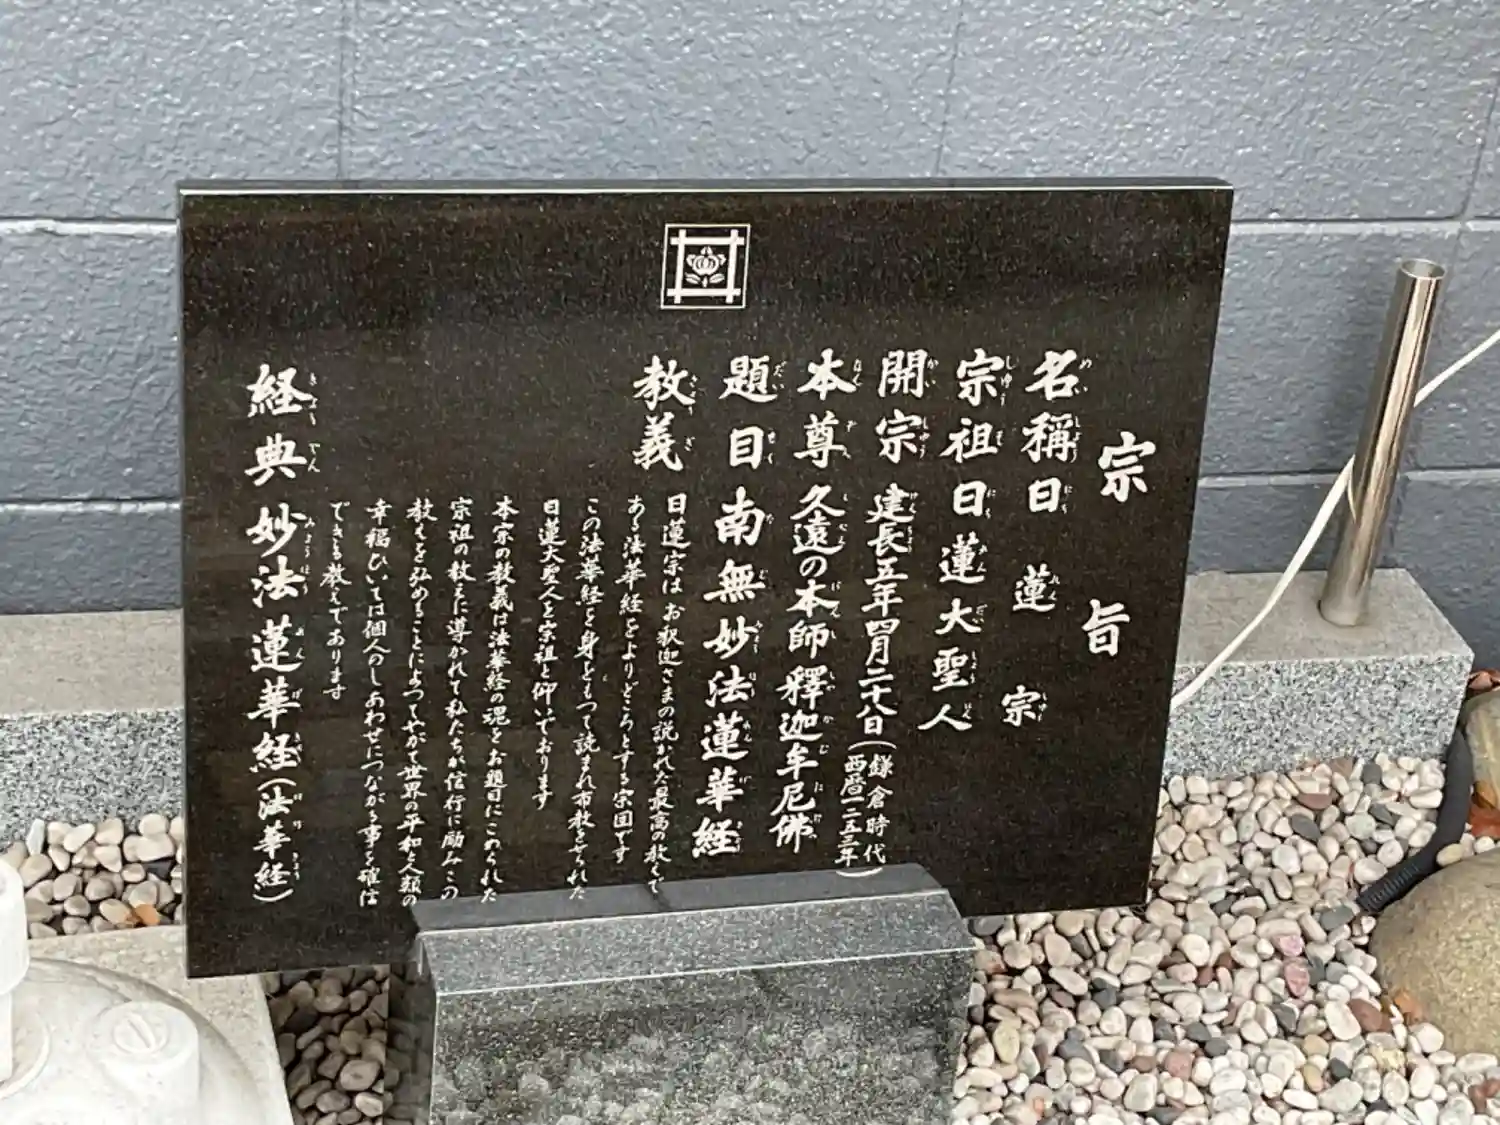 宗旨
名稱 日蓮宗
宗祖 日蓮大聖人
開宗 建長五年四月二十八日（鎌倉時代 西暦一二五三年）
本尊 久遠の本師釋迦牟尼佛
題目 南無妙法蓮華経
教義
日蓮宗は お釈迦さまの説かれた最高の教えで
ある法華経をよりどころとする宗団です
この法華経を身をもって読まれ布教をせられた
日蓮大聖人を宗祖と仰いでおります
本宗の教義は法華経の魂をお題目にこめられた
宗祖の教えに導かれて私たちが信行に励みこの
教えを弘めることによってやがて世界の平和と人類の
幸福ひいては個人のしあわせにつながる事を確信
できる教えであります
経典 妙法蓮華経（法華経）